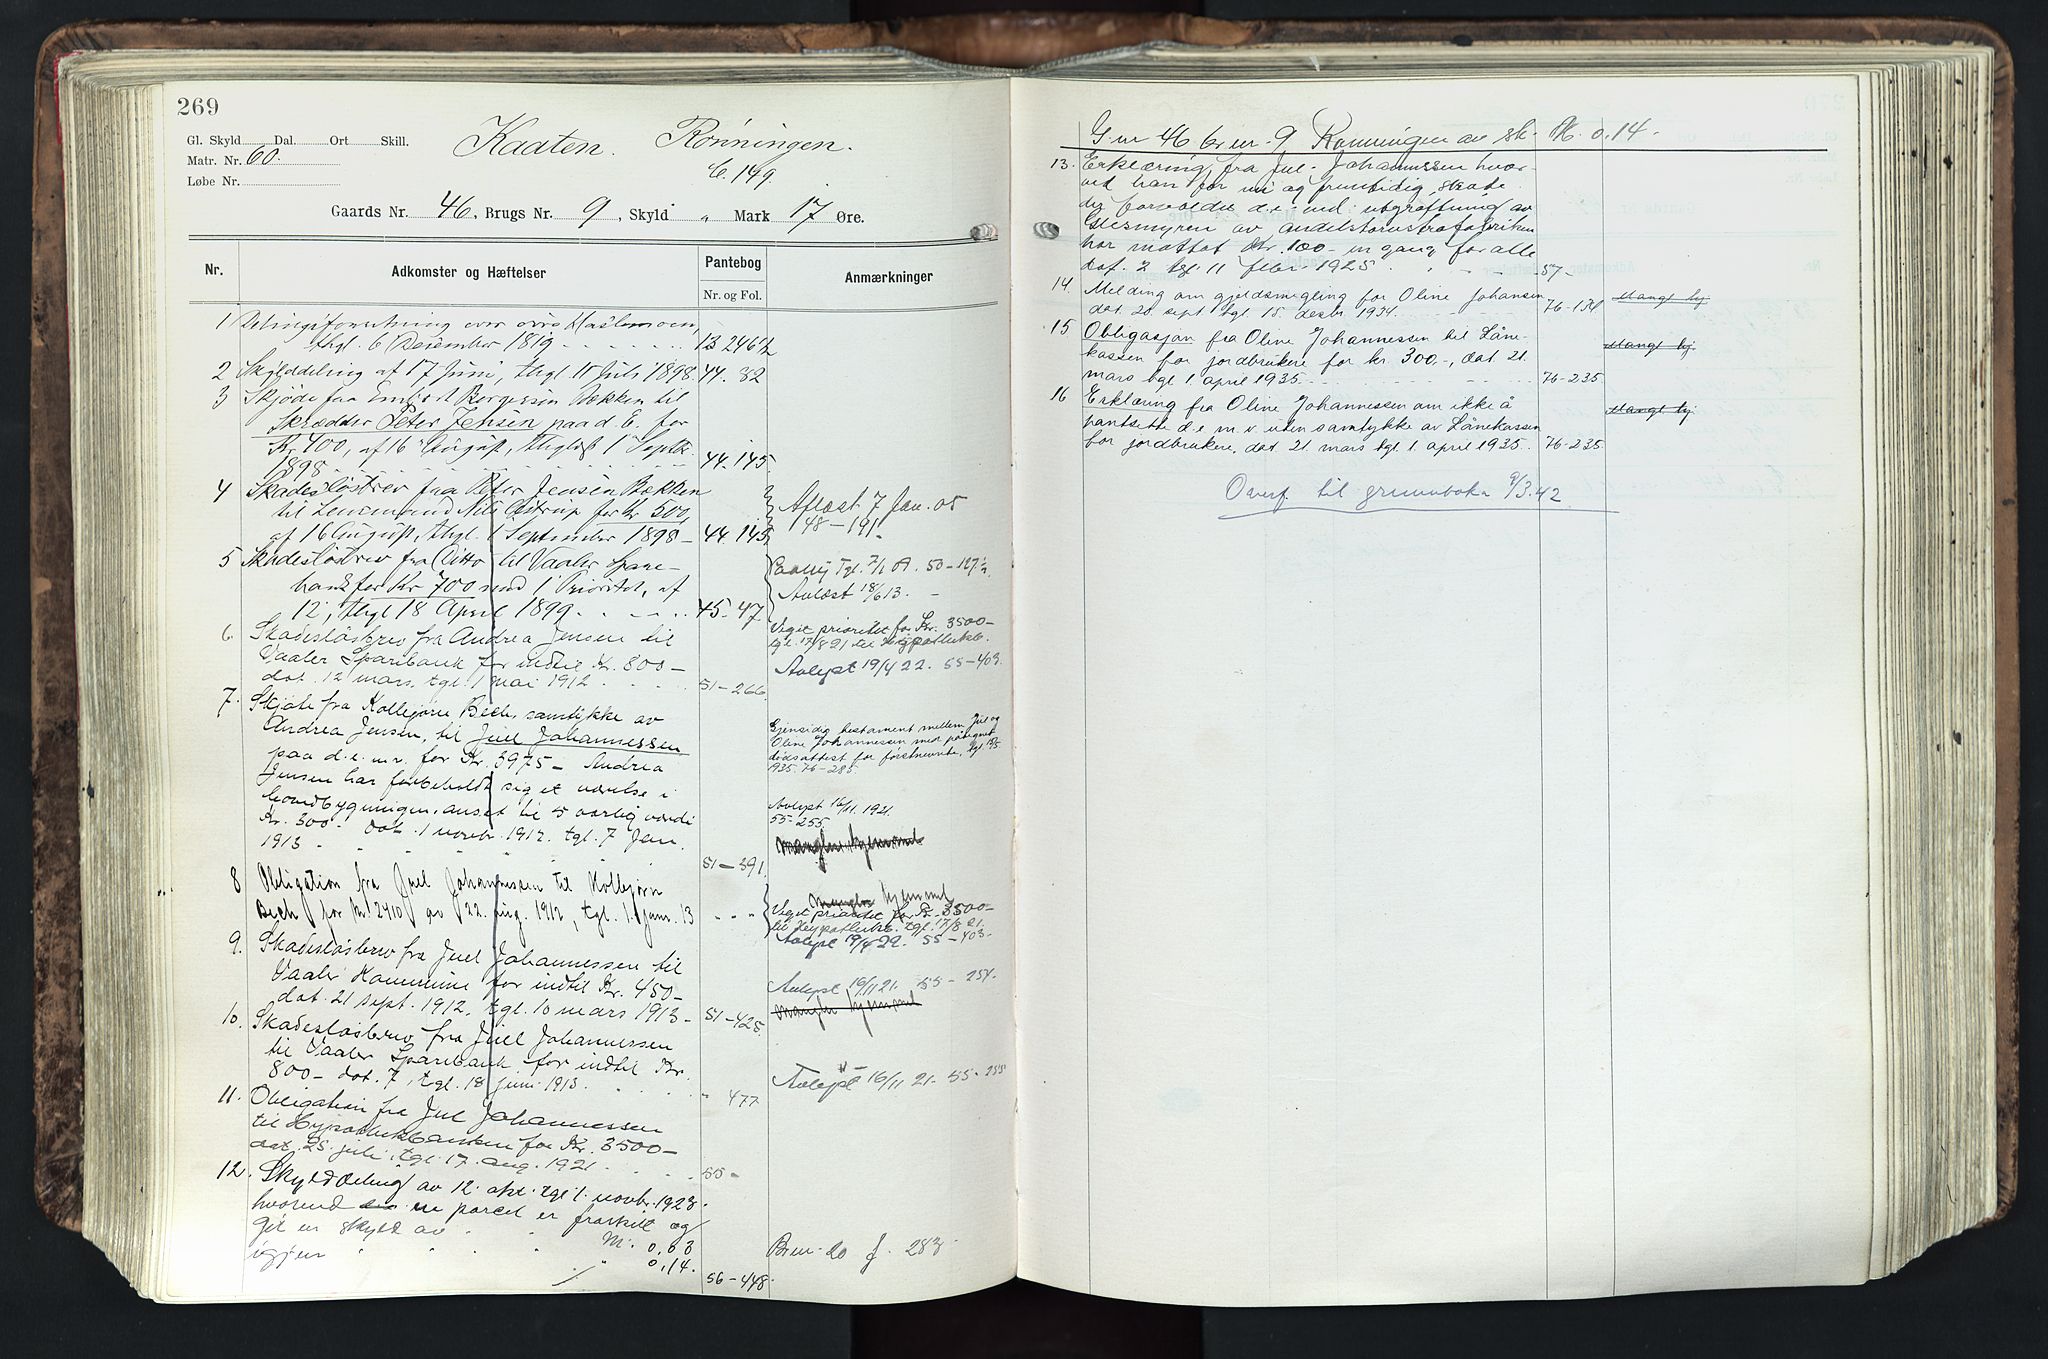 269
Gl. Skyld Dal. Ort Skill.
Kaaten. Rønningen.
Matr. Nr. 60.
Løbe Nr.
C. 149.
Gaards Nr. 46, Brugs Nr. 9, Skyld „ Mark 17 Øre.
Nr.
Adkomster og Hæftelser
Pantebog
Nr. og Fol.
Anmærkninger
1 Delingsforretning over øvre Haslemoen,
thgl. 6 December 1819 13 246 1/2
2 Skylddeling af 17 Juni, thgl 11 Juli 1898. 44. 82
3 Skjøde fra Borgersen Bækken til
Skrædder Peter Jensen paa d. E. for
Kr 400, af 16 August, thglæst 1 Septbr
1898 44. 145
4 Skadesløsbrev fra Peter Jensen Bækken
til Lensmand Nils Østrup for Kr 500,
af 16 August, thgl. 1 September 1898 – 44. 145
Aflæst 7 Jan. 05
48 – 191.
5 Skadesløsbrev fra Ditto til Vaaler Spare-
bank for Kr 700 med 1 Prioritet, af
12, thgl 18 April 1899 45-47
Avlæst 18/6 13.
6. Skadesløsbrev fra Andrea Jensen til
Vaaler Sparebank for indtil Kr. 800 –
dat. 12 mars, tgl. 1 mai 1912 51 – 266.
Veget prioritet for Kr. 3500 –
tgl. 17/8 21 til Hypothekb.
Avlyst 19/4 22. 55 – 403.
7. Skjøte fra Kolbjørn Bech, samtykke av
Andrea Jensen, til Juel Johannessen
paa d. e. m. v. for Kr. 3975 – Andrea
Jensen har forbeholdt sig et værelse i
hovedbygningen, anset til 5 aarlig værdi
Kr. 300 – Dat. 1 novbr. 1912, tgl. 7 Jan.
1913 51 – 391.
Gjensidig testament mellem Juel og
Oline Johannessen med påtegnet
dødsattest for førstnevnte, tgl
1935. 76 – 285.
Avlyst 16/11. 1921.
55 – 255.
mangler hjemmel
8 Obligation fra Juel Johannessen til Kolbjørn
Bech for kr 2410 av 22. aug. 1912, tgl. 1. jan. 13 „ „ „
mangler hjemmel
Veget prioritet for Kr. 3500 –
til Hypothekb. tgl. 17/8 21.
Avlyst 19/4 22. 55 – 403.
9. Skadesløsbrev fra Juel Johannessen til
Vaaler Kommune for indtil Kr. 450 –
dat. 21 sept. 1912, tgl. 10 mars 1913 – 51 – 425.
Avlyst 16/11 21. 55 – 254.
mangler hjemmel
10. Skadesløsbrev fra Juel Johannessen
til Vaaler Sparebank for indtil Kr.
800 – dat. 7, tgl. 18 juni 1913. „ 477
Avlyst 16/11 21. 55 – 255
11. Obligation fra Juel Johannessen
til Hypothekbanken for Kr. 3500 –
dat. 25 juli, tgl. 17. aug. 1921 55 –
12. Skylddeling av 12. okt. tgl. 1. novbr. 1923.
hvorved en parcel er fraskilt og
git en skyld av M. 0,03
igjen „ „ „ 0,14.
56 – 448.
Br.nr. 20 f. 283.
G. nr 46 br. nr. 9 Rønningen av sk. M. 0.14.
13. Erklæring fra Juel Johannessen hvor-
ved han for nu og fremtidig skade
der forvoldes d. e. ved utgrøftning av
Glesmyren av andelstorvstrøfabriken
har mottat kr. 100 – en gang for alle
dat. 2 tgl. 11 febr. 1925 57 –
14. Melding om gjeldsmegling for Oline Johansen
dat. 20 sept. tgl. 15. desbr. 1934. 76-134
Mangl. hj.
15 Obligasjon fra Oline Johannessen til Låne-
kassen for jordbrukere for kr. 300,-, dat 21.
mars tgl 1. april 1935 76-235
Mangl. hj.
16 Erklæring fra Oline Johannessen om ikke å
pantsette d. e. m. v. uten samtykke av Lånekassen
for jordbrukere, dat. 21. mars tgl. 1. april 1935. 76-235
Mangl. hj.
Overf. til grunnboka 9/3.42